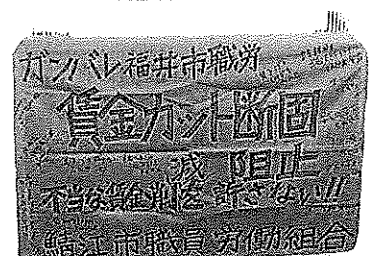 ガンバレ福井市職労
賃金カット断固
阻止
不当な賃金削減を許さない!!
鯖江市職員労働組合